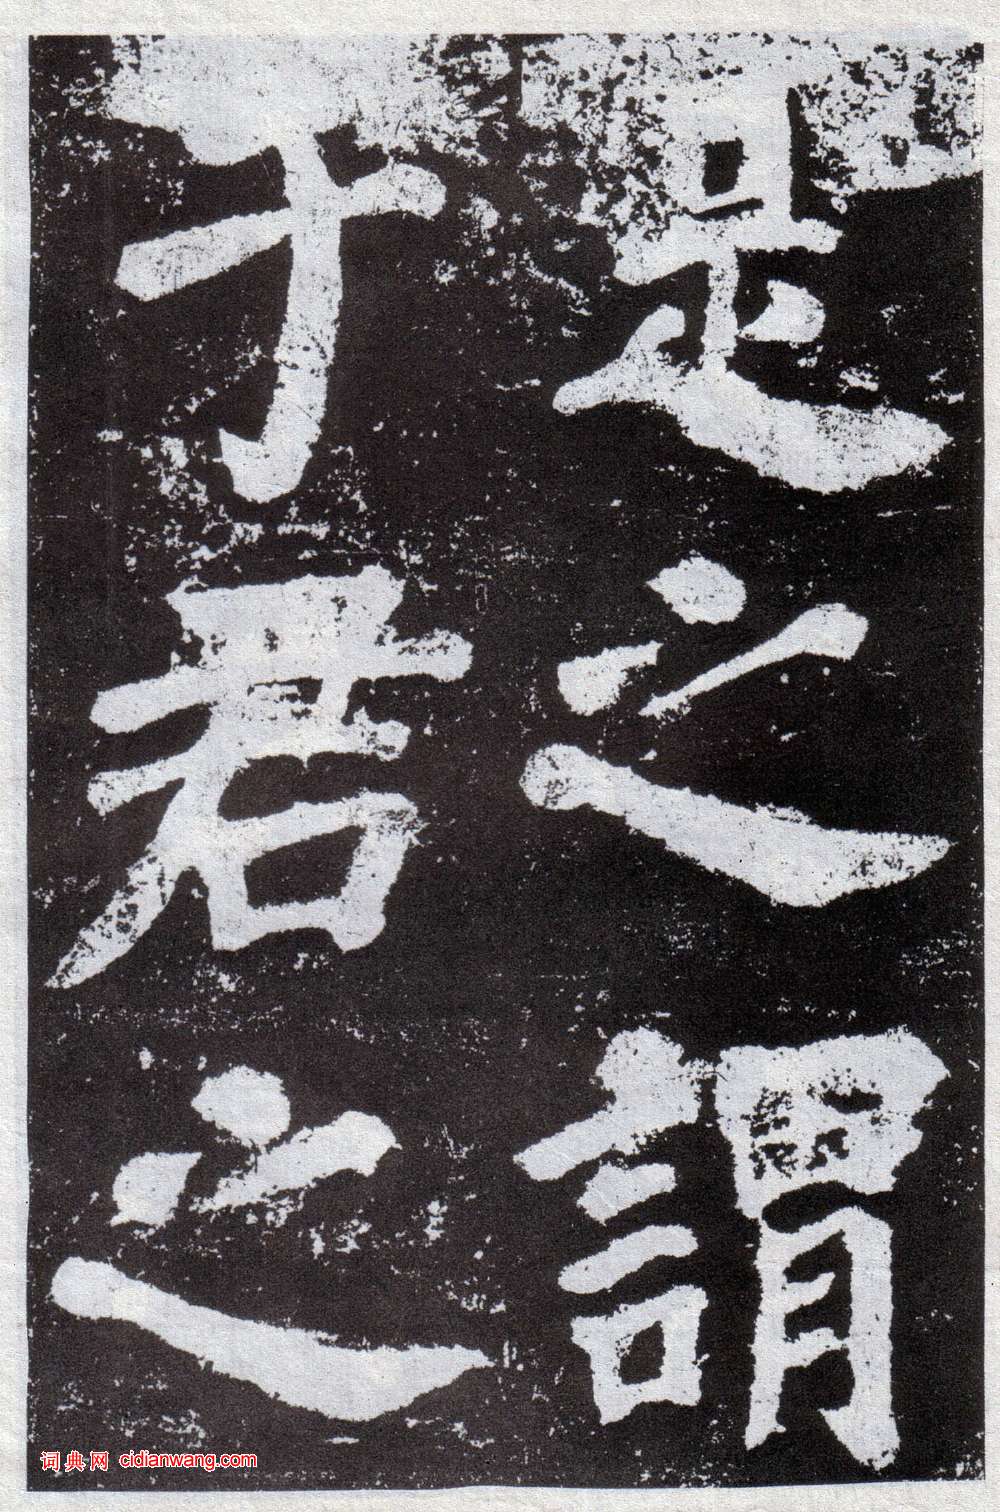 是之謂
于君之
词典网 cidianwang.com